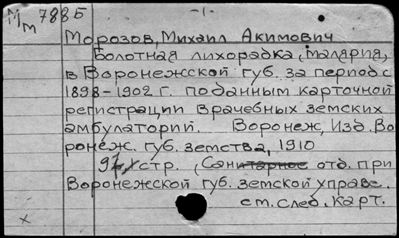 Мм 7885 -1-
Морозов, Михаил Акимович
Болотная лихорадка, (малярия,
в Воронежской губ. за период с
1898-1902 г. по данным карточной
регистрации врачебных земских
амбулаторий. Воронеж, Изд. Во
ронеж. губ. земства, 1910
стр. (Санитарное отд. при
Воронежской губ. земской управе.
см. след. карт.
x